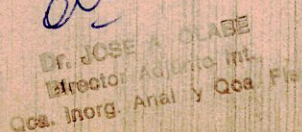 Dr. JOSE A. OLABE
Director Adjunto Int.
Qca. Inorg. Anal y Qca Fis